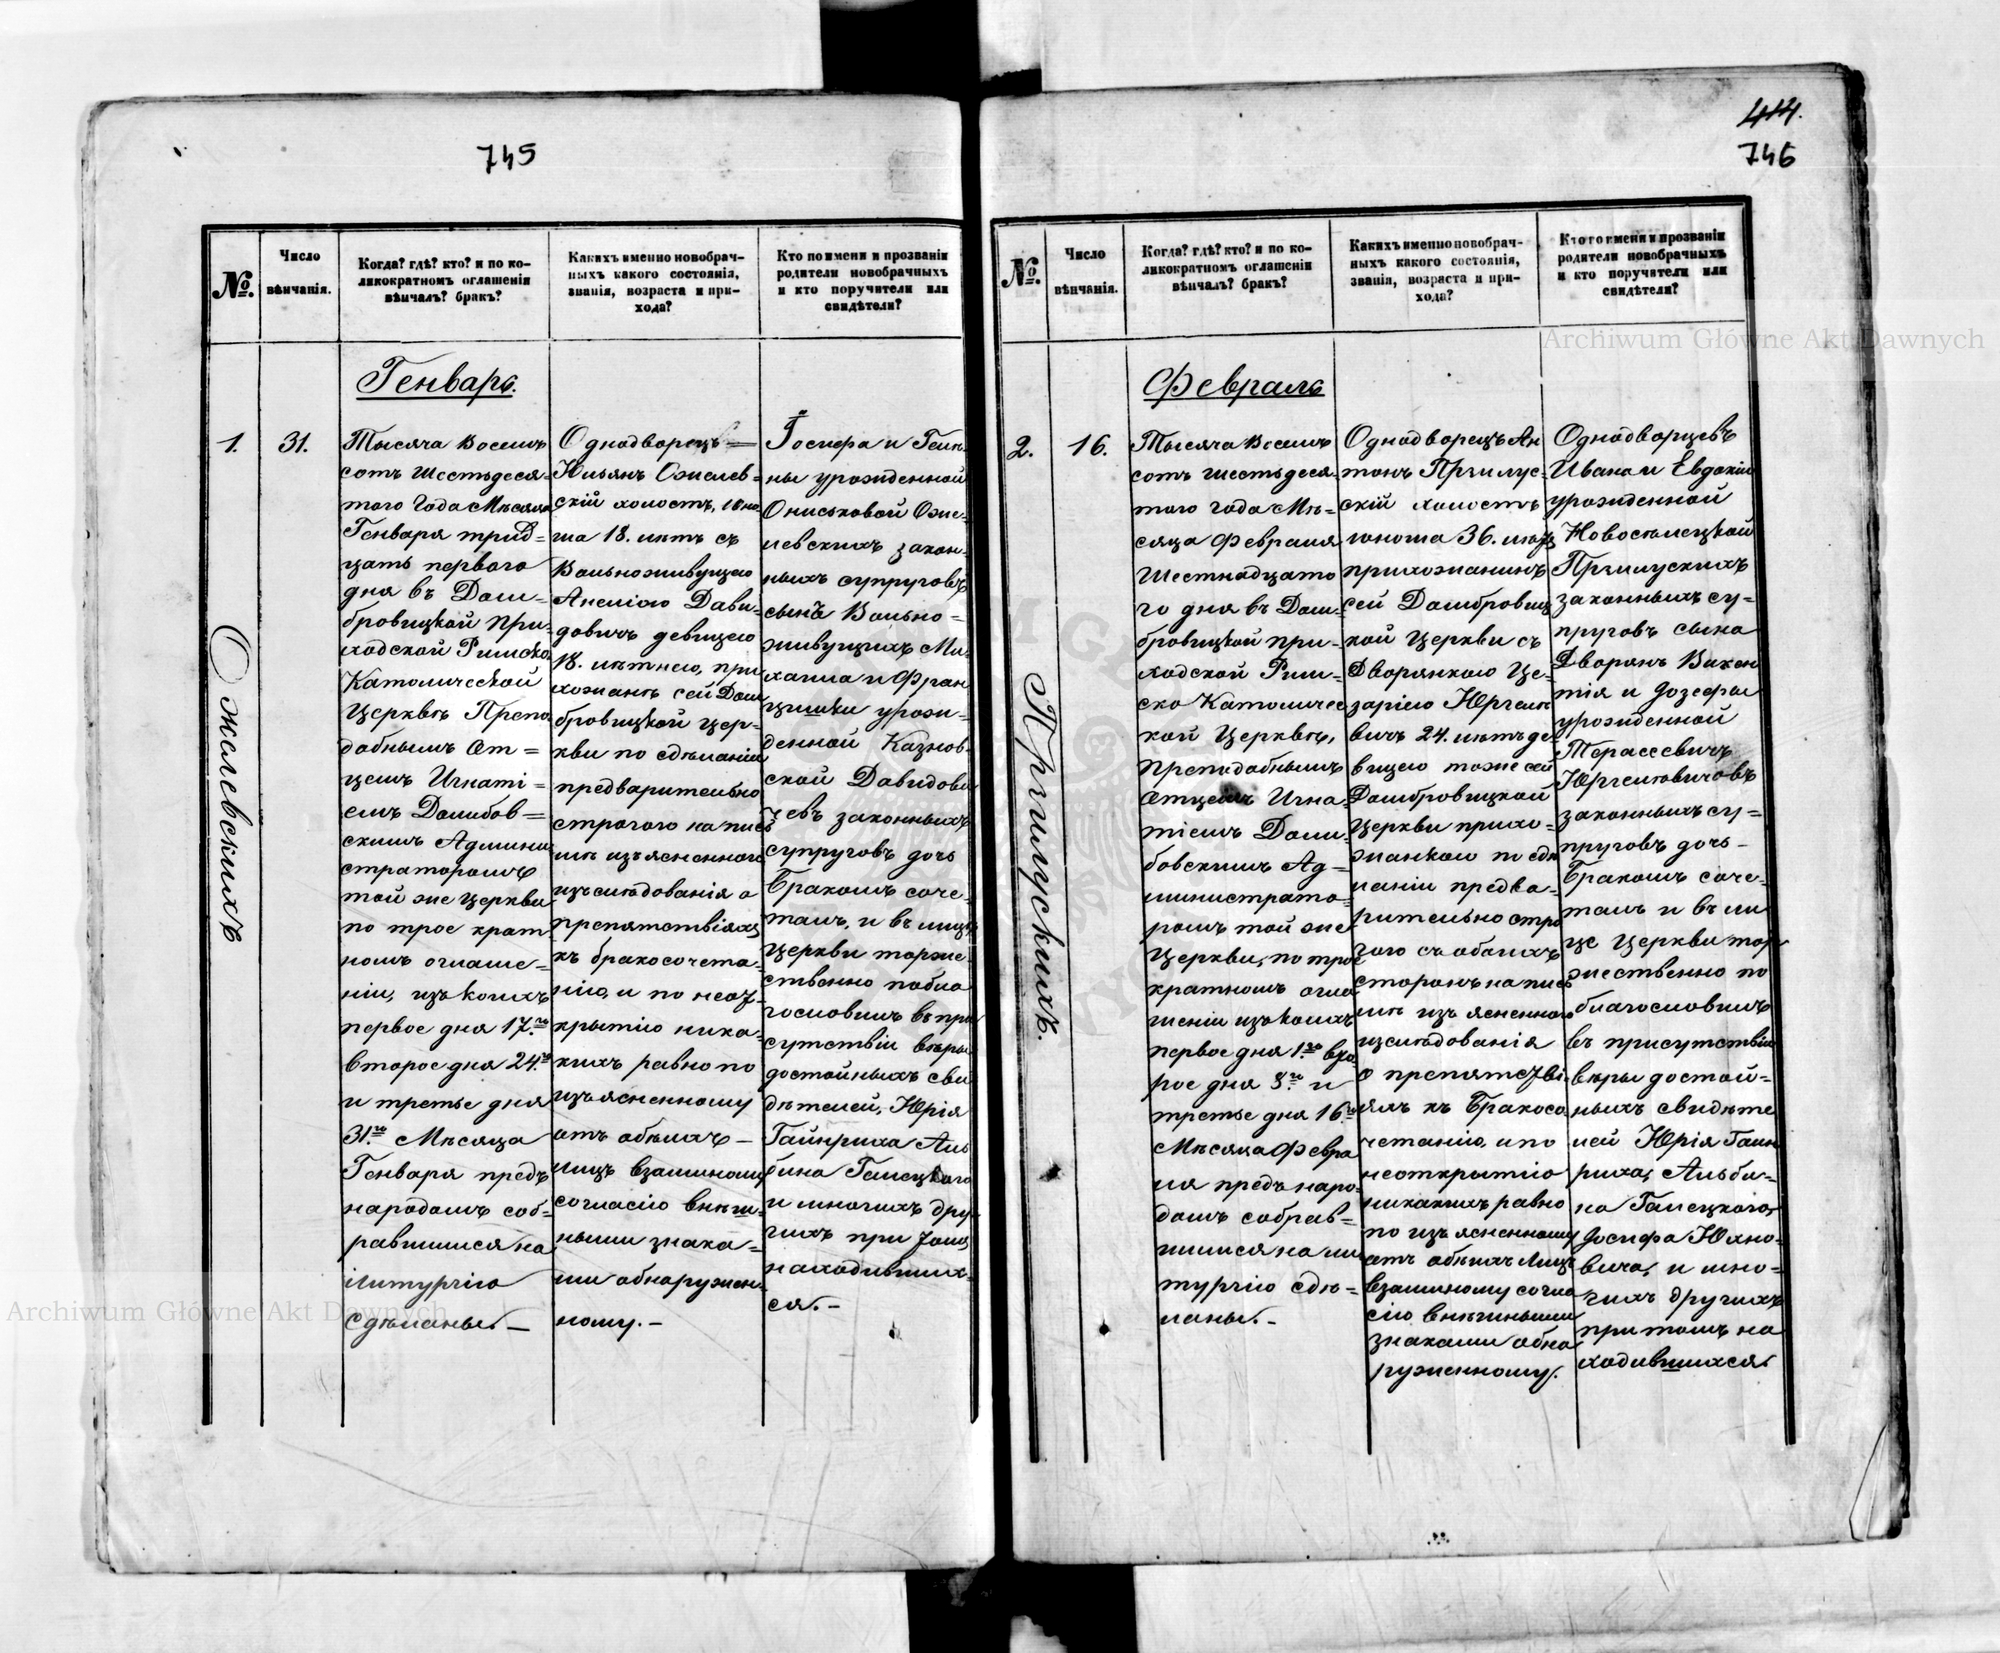 745
№.
Число
вѣнчанія.
Когда? гдѣ? кто? и по ко-
ликократномъ оглашеніи
вѣнчалъ? бракъ?
Какихъ именно новобрач-
ныхъ какого состоянія,
званія, возраста и при-
хода?
Кто по имени и прозваніи
родители новобрачныхъ
и кто поручители или
свидѣтели?
Генварь.
1.
31.
Ожалевскихъ
Тысяча Восемь
сотъ Шестьдеся-
того Года Мѣсяца
Генваря трид=
цать первого
дня въ Дом-
бровицкой При-
ходской Римско
Католической
Церквѣ Препо
добнымъ От=
цемъ Игнаті=
емъ Домбов=
скимъ Админи
страторомъ
той же Церкви
по трое крат
номъ оглаше-
ніи, изъ коихъ
первое дня 17.го
второе дня 24.го
и третье дня
31.го Мѣсяца
Генваря предъ
народомъ соб-
равшимся на
Литургію
сдѣланы.-
Однодворецъ=
Юльянъ Ожалев-
скій холостъ, юно
ша 18. лѣтъ съ
Вольноживущею
Анелією Дави-
довичъ девицею
18. лѣтнею, при
хожане сей Дом
бровицкой Цер-
кви по сдѣланіи
предварительно
строгого на пись
мѣ изъясненного
изъслѣдованія о
препятствіяхъ
къ бракосочета-
нію, и по неот-
крытію ника-
кихъ равно по
изъясненному
отъ обѣихъ-
лицъ взаимному
согласію внѣш-
ными знака=
ми обнаружен-
ному.-
Іосифа и Гелѣ-
ны урожденной
Ониськовой Ожа-
левскихъ закон-
ныхъ супруговъ
сынъ Вольно=
живущихъ Ми-
хаила и Фран
цишки урож-
денной Казнов-
ской Давидови
чевъ законныхъ
супруговъ дочь
Бракомъ соче-
талъ, и въ лицѣ
Церкви торже-
ственно побла
гословилъ въ при
сутствіи вѣры
достойныхъ сви
дѣтелей, Юрія
Гайнриха Аль
бина Галецкого
и многихъ дру-
гихъ при томъ
находивших-
ся.-
414.
746
№.
Число
вѣнчанія.
Когда? гдѣ? кто? и по ко-
ликократномъ оглашеніи
вѣнчалъ? бракъ?
Какихъ именно новобрач-
ныхъ какого состоянія,
званія, возраста и при-
хода?
Кто по имени и прозваніи
родители новобрачныхъ
и кто поручители или
свидѣтели?
Февраль
2.
16.
Пржилускихъ.
Тысяча Восемь
сотъ шестьдеся-
того года Мѣ-
сяца Февраля
Шестнадцато
го дня въ Дом-
бровицкой при-
ходской Рим-
ско Католичес
кой Церквѣ,
Преподобнымъ
Отцемъ Игна-
тіемъ Дом-
бовскимъ Ад-
министрато-
ромъ той же
Церкви, по трое
кратномъ огла
шеніи изъ коихъ
первое дня 1.го вто
рое дня 8.го и
третье дня 16.го
Мѣсяца Февра
ля предъ наро-
домъ собрав-
шимся на ли
тургію сдѣ-
ланы.-
Однодворецъ Ан
тонъ Пржилус-
скій холостъ
юноша 36. лѣтъ
прихожанинъ
сей Домбровиц
кой Церкви съ
Дворянкою Це-
зарією Юргеле
вичъ 24. лѣтъ де
вицею тоже сей
Домбровицкой
Церкви прихо-
жанкою по сдѣ
ланіи предва-
рительно стро
гого съ обоихъ
сторонъ на пись
мѣ изъясненного
изслѣдованія
о препятстві-
яхъ къ Бракосо
четанію, и по
неоткрытію
никакихъ равно
по изъясненному
отъ обѣихъ лицъ
взаимному согла
сію внѣшными
знаками обна
руженному.
Однодворцевъ
Ивана и Евдокіи
урожденной
Новоселецкой
Пржилускихъ
законныхъ су-
пруговъ сына
Дворянъ Викен
тія и Іозефы
урожденной
Терасевичъ
Юргелевичовъ
законныхъ су-
пруговъ дочь-
Бракомъ соче-
талъ и въ ли
це Церкви тор-
жественно по
благословилъ
въ присутствіи
вѣры достой=
ныхъ свидѣте
лей Юрія Гайн
риха, Альби-
на Галецкого,
Іосифа Юхно-
вича, и мно-
гихъ другихъ
при томъ на
ходившихся.
Archiwum Główne Akt Dawnych
Archiwum Główne Akt Dawnych